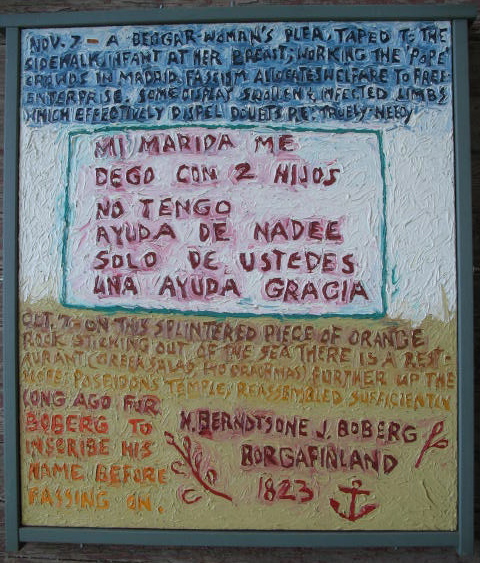 NOV. 7 - A BEGGAR-WOMAN'S PLEA, TAPED TO THE
SIDEWALK, INFANT AT HER BREAST, WORKING THE "POPE"
CROWDS IN MADRID. FASSISM ALLOCATES WELFARE TO FREE-
ENTERPRISE. SOME DISPLAY SWOLLEN & INFECTED LIMBS
WHICH EFFECTIVELY DISPEL DOUBTS RE: TRUELY-NEEDY
MI MARIDA ME
DEGO CON 2 HIJOS
NO TENGO
AYUDA DE NADEE
SOLO DE USTEDES
UNA AYUDA GRACIA
OCT. 7 - ON THIS SPLINTERED PIECE OF ORANGE
ROCK STICKING OUT OF THE SEA THERE IS A REST-
AURANT (GREEK SALAD, 140 DRACHMAS) FURTHER UP THE
POSEIDON'S TEMPLE, REASSEMBLED SUFFICIENTLY
LONG AGO FOR
BOBERG TO
INSCRIBE HIS
NAME BEFORE
PASSING ON.
N. BERNDTSONE J. BOBERG
BORGAFINLAND
1823